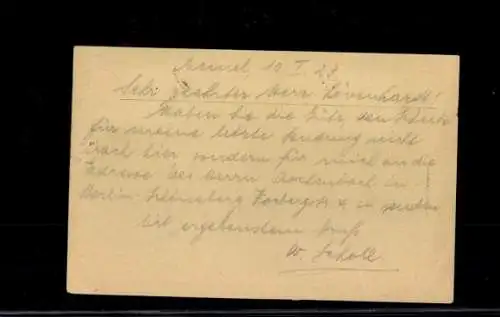 10. I. 28
Sehr geehrter Herr Lövenhardt!
Haben Sie die Güte, den
für meine letzte Sendung nicht
nach hier sondern für mich an die
Adresse des Herrn in
Berlin 4 zu senden
Mit ergebenstem Gruß
W. Scholl